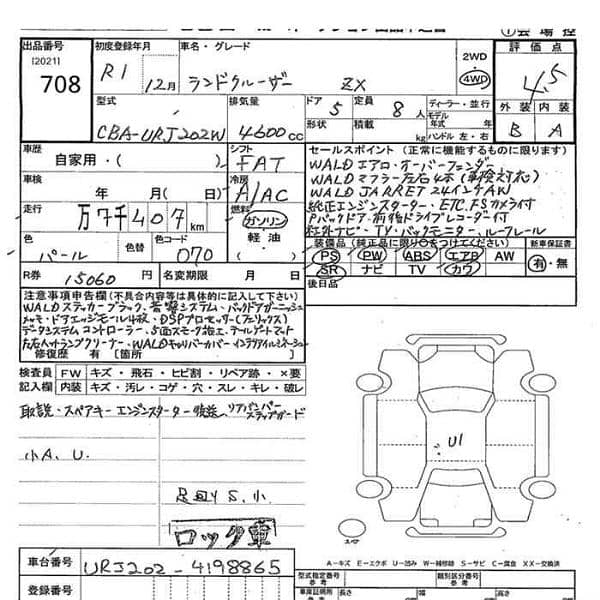 出品番号
[2021]
708
初度登録年月
R1 12月
車名・グレード
ランドクルーザー ZX
2WD
4WD
評価点
4.5
外装 内装
B A
型式
CBA-URJ202W
排気量
4600cc
ドア 5
形状
定員 8人
積載 kg
ディーラー・並行
モデル年式 年式
ハンドル 左・右
車歴
自家用・( )
シフト
FAT
車検
年 月( )
冷房
A/AC
走行
万7千407km
燃料
ガソリン
軽油
( )
色
パール
色替
色コード
070
R券 15060円
名変期限 月 日
セールスポイント(正常に機能するものに限ります)
WALDエアロ・オーバーフェンダー
WALDマフラー左右4本(車検対応)
WALD JARRET 24インチAW
純正エンジンスターター・ETC.F.Sカメラ付
Pバックドア・前後ドライブレコーダー付
社外ナビ・TV・バックモニター・ルーフレール
装備品(純正品に限り○をつけてください)
新車保証書
PS PW ABS エアB AW
SR ナビ TV カワ
有・無
後日品
注意事項申告欄(不具合内容等は具体的に記入して下さい)
WALDステッカーブラック、音響システム・バックドアガーニッシュ
メッキ・ドアエッジモール4枚・DSPプロセッサー(フェリックス)
データシステムコントローラー・5面スモーク施工・テールゲートマット
左右ヘッドランプクリーナー・WALDキャリパーカバー・インテリアイルミネーション
修復歴 有[箇所 ]
検査員
記入欄
FW キズ・飛石・ヒビ割・リペア跡・×要
内装 キズ・汚レ・コゲ・穴・スレ・キレ・破レ
取説・スペアキー エンジンスターター後送 リアバンパーステップガード
小A.U.
足回りS.小
ロック車
U1
A－キズ E－エクボ U－凹み W－補修跡 S－サビ C－腐食 XX－交換済
車台番号
URJ202-4198865
登録番号
型式指定番号
参考
類別区分番号
参考
長さ 幅 高さ